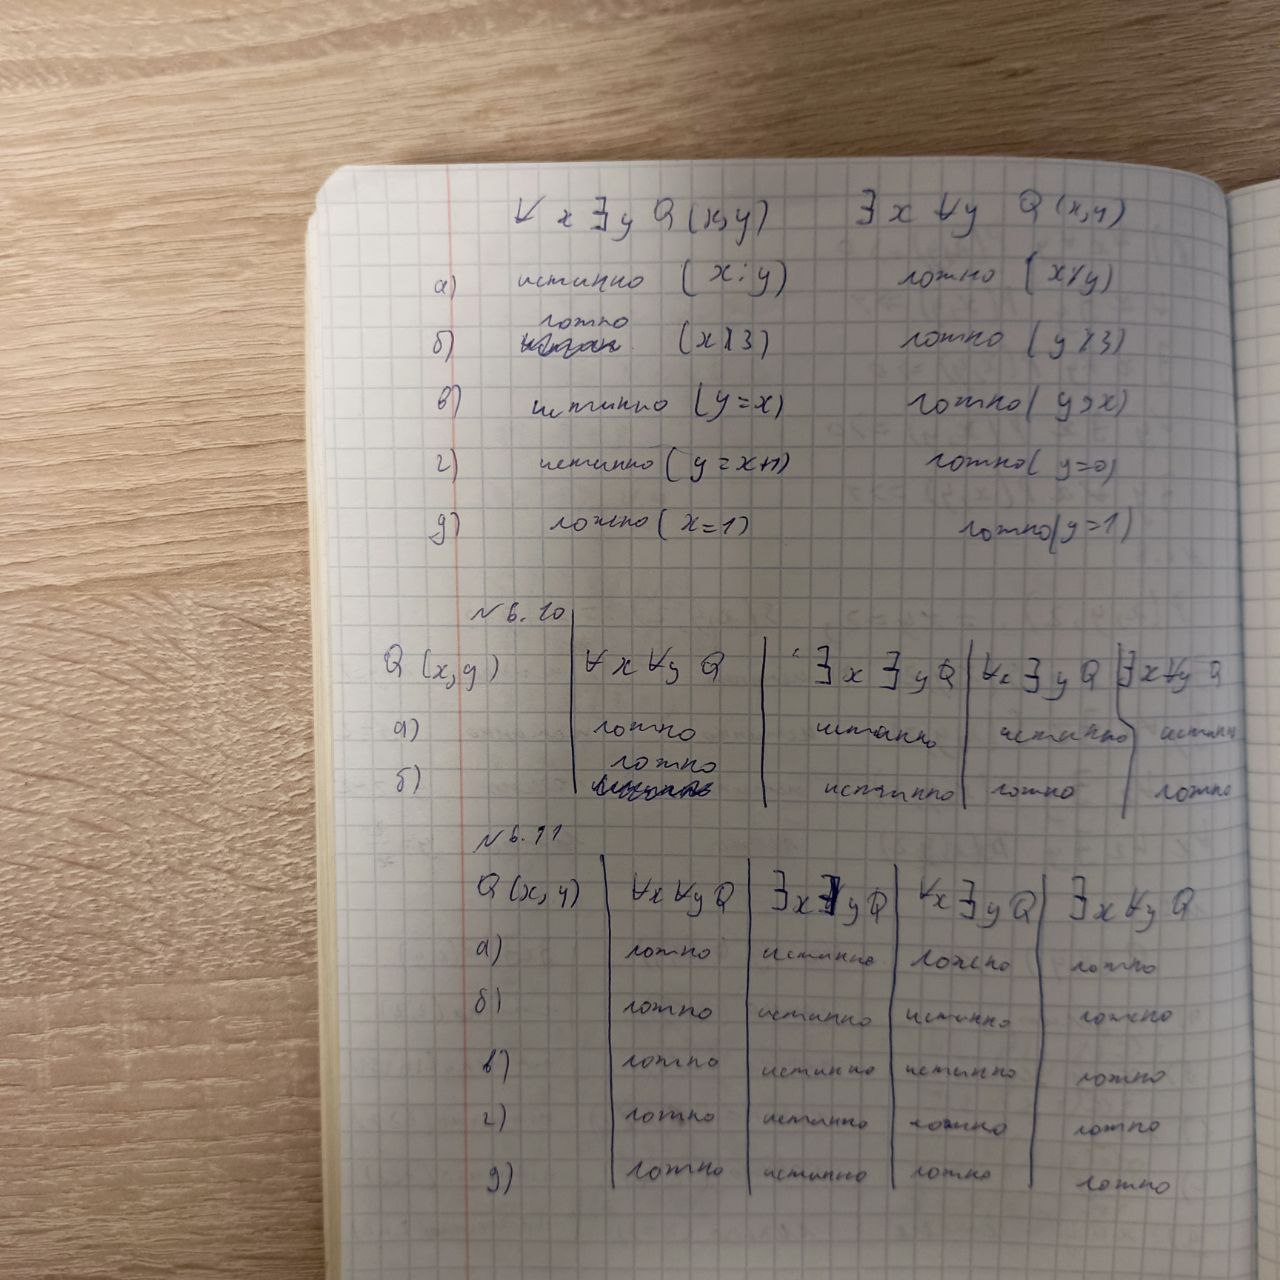 ∀x∃yQ(x,y) ∃x∀y Q(x,y)
а) истинно (x⋮y) ложно (x⋮̸y)
б) ложно (x⋮̸3) ложно (y⋮̸3)
в) истинно (y=x) ложно (y>x)
г) истинно (y=x+1) ложно (y=0)
д) ложно (x=1) ложно (y=1)
№6.10
Q(x,y) ∀x∀yQ ∃x∃yQ ∀x∃yQ ∃x∀yQ
а) ложно истинно истинно истинно
б) ложно истинно ложно ложно
№6.11
Q(x,y) ∀x∀yQ ∃x∃yQ ∀x∃yQ ∃x∀yQ
а) ложно истинно ложно ложно
б) ложно истинно истинно ложно
в) ложно истинно истинно ложно
г) ложно истинно ложно ложно
д) ложно истинно ложно ложно